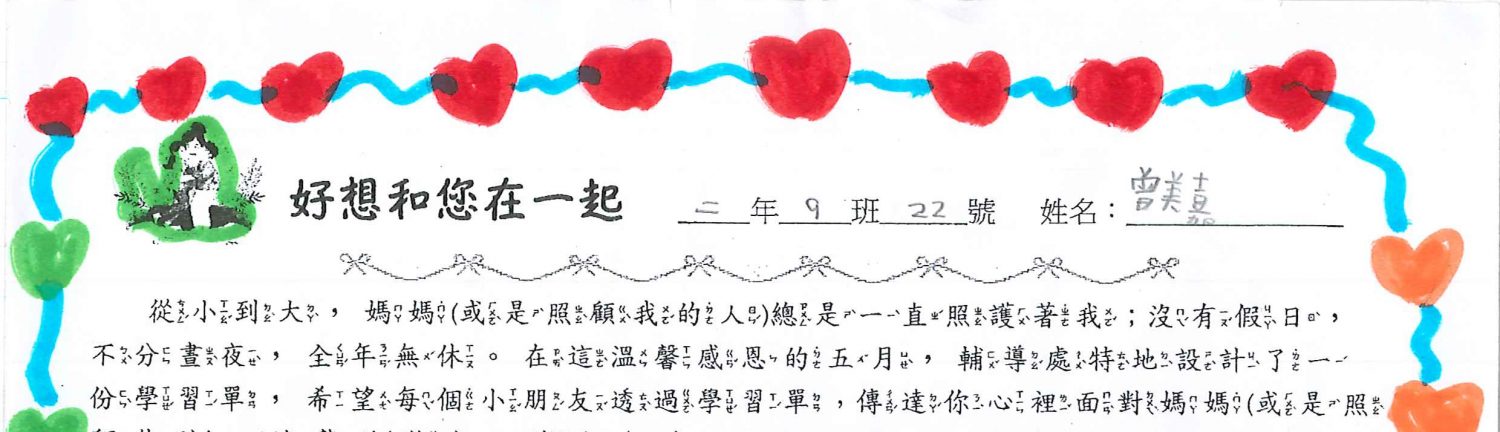 好想和您在一起 二年9班22號 姓名：曾美嘉
從小到大，媽媽(或是照顧我的人)總是一直照護著我；沒有假日，
不分晝夜，全年無休。在這溫馨感恩的五月，輔導處特地設計了一
份學習單，希望每個小朋友透過學習單，傳達你心裡面對媽媽(或是照